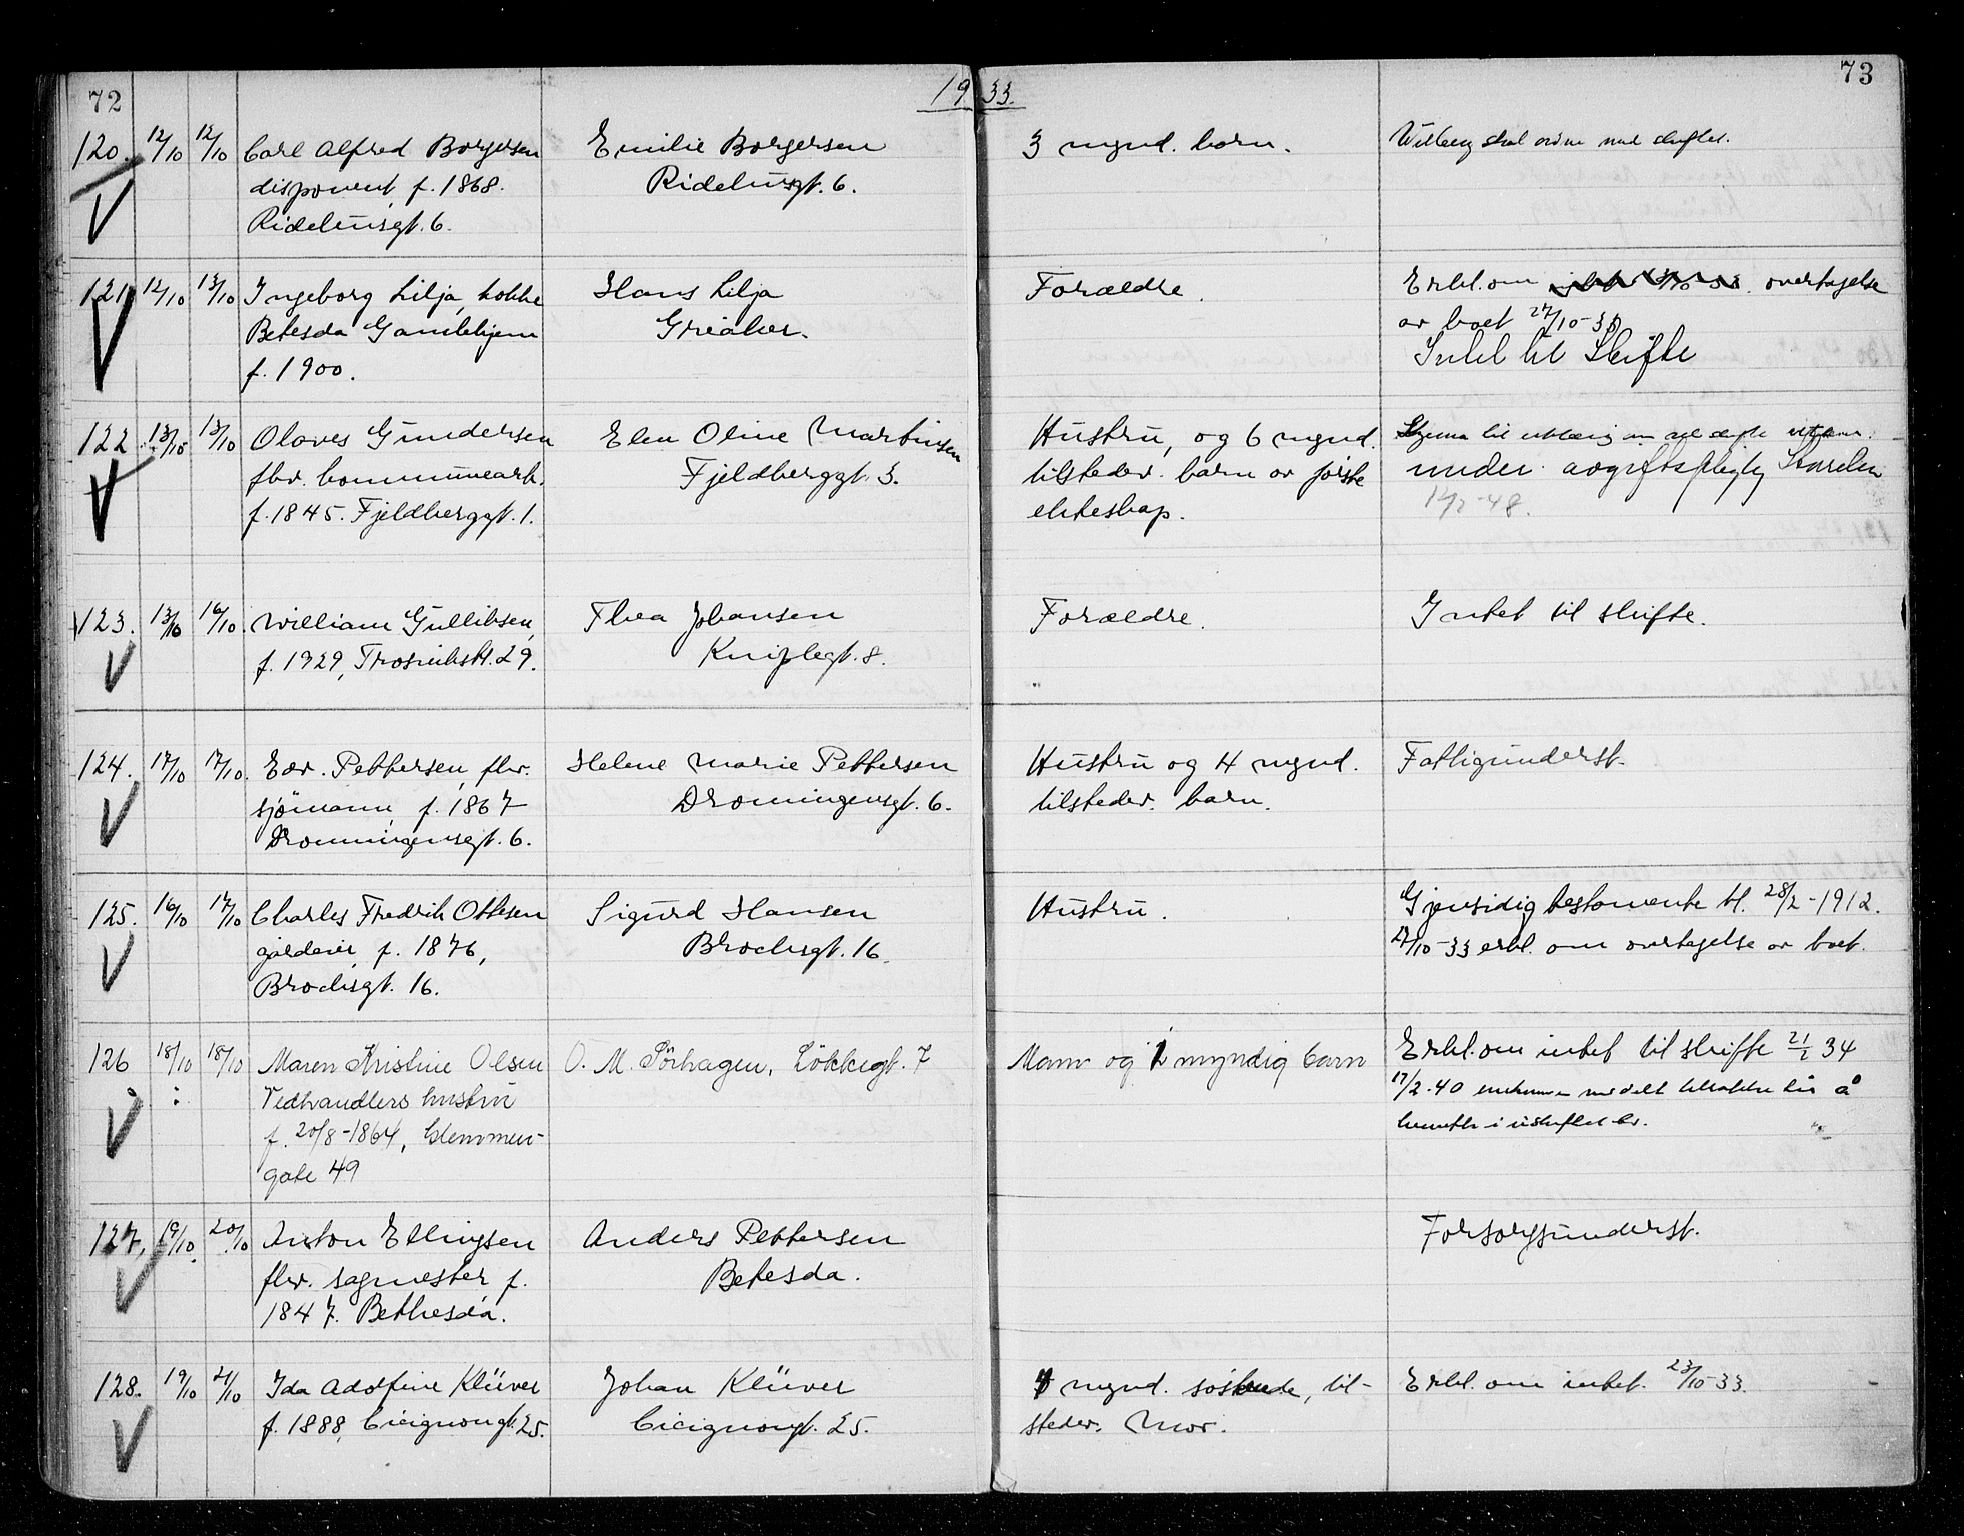 72
1933.
73
120. 12/10 12/10 Carl Alfred Borgersen
disponent, f. 1868.
Ridehusgt. 6.
Emilie Borgersen
Ridehusgt. 6.
3 mynd. barn.
Wilberg skal ordne med skiftet.
121 12/10 13/10 Ingeborg Lilja, kokke
Betesda Gamlehjem
f. 1900.
Hans Lilja
Greåker.
Forældre.
Erkl. om overtagelse
av boet 27/10-33
Intet til Skifte
122 13/10 13/10 Olaves Gundersen
fhv. kommunearb.
f. 1845. Fjeldberggt. 1.
Elen Oline Martinsen
Fjeldberggt. 3.
Hustru, og 6 mynd.
tilstedev. barn av første
ekteskap.
Skjema til erklæring om
under avgiftspligtig Størrelse
-48.
123. 13/10 16/10. William Gullibsen,
f. 1929, Trosvikstr. 29.
Thea Johansen
Kniplegt. 8.
Forældre.
Intet til skifte.
124. 17/10 17/10. Edv. Pettersen, fhv.
sjömann, f. 1867
Dronningensgt. 6.
Helene Marie Pettersen
Dronningensgt. 6.
Hustru og 4 mynd.
tilstedev. barn.
Fattigunderst.
125. 16/10 17/10 Charles Fredrik Ottesen
gårdeier, f. 1876,
Brochsgt. 16.
Sigurd Hansen
Brochsgt. 16.
Hustru.
Gjensidig testamente tl. 28/2-1912.
27/10-33 erkl. om overtagelse av boet.
126 18/10 18/10 Maren Kristine Olsen
Vedhandlers hustru
f. 20/8-1864, Glemmen-
gate 49
O. M. Pörhagen, Løkkegt. 7
Mann og 1 myndig barn
Erkl. om intet til skifte 21/2 34
17/2-40 enkemann meddelt å
i uskiftet bo.
127, 19/10 20/10 Anton Ellingsen
fhv. sagmester f.
1847. Bethesda.
Anders Pettersen
Betesda.
Forsorgsunderst.
128. 19/10 21/10 Ida Adolfine Klüver
f. 1888, Cicignongt. 25.
Johan Klüver
Cicignongt. 25.
mynd. søskende, til-
stedev. Mor.
Erkl. om intet. 23/10-33.